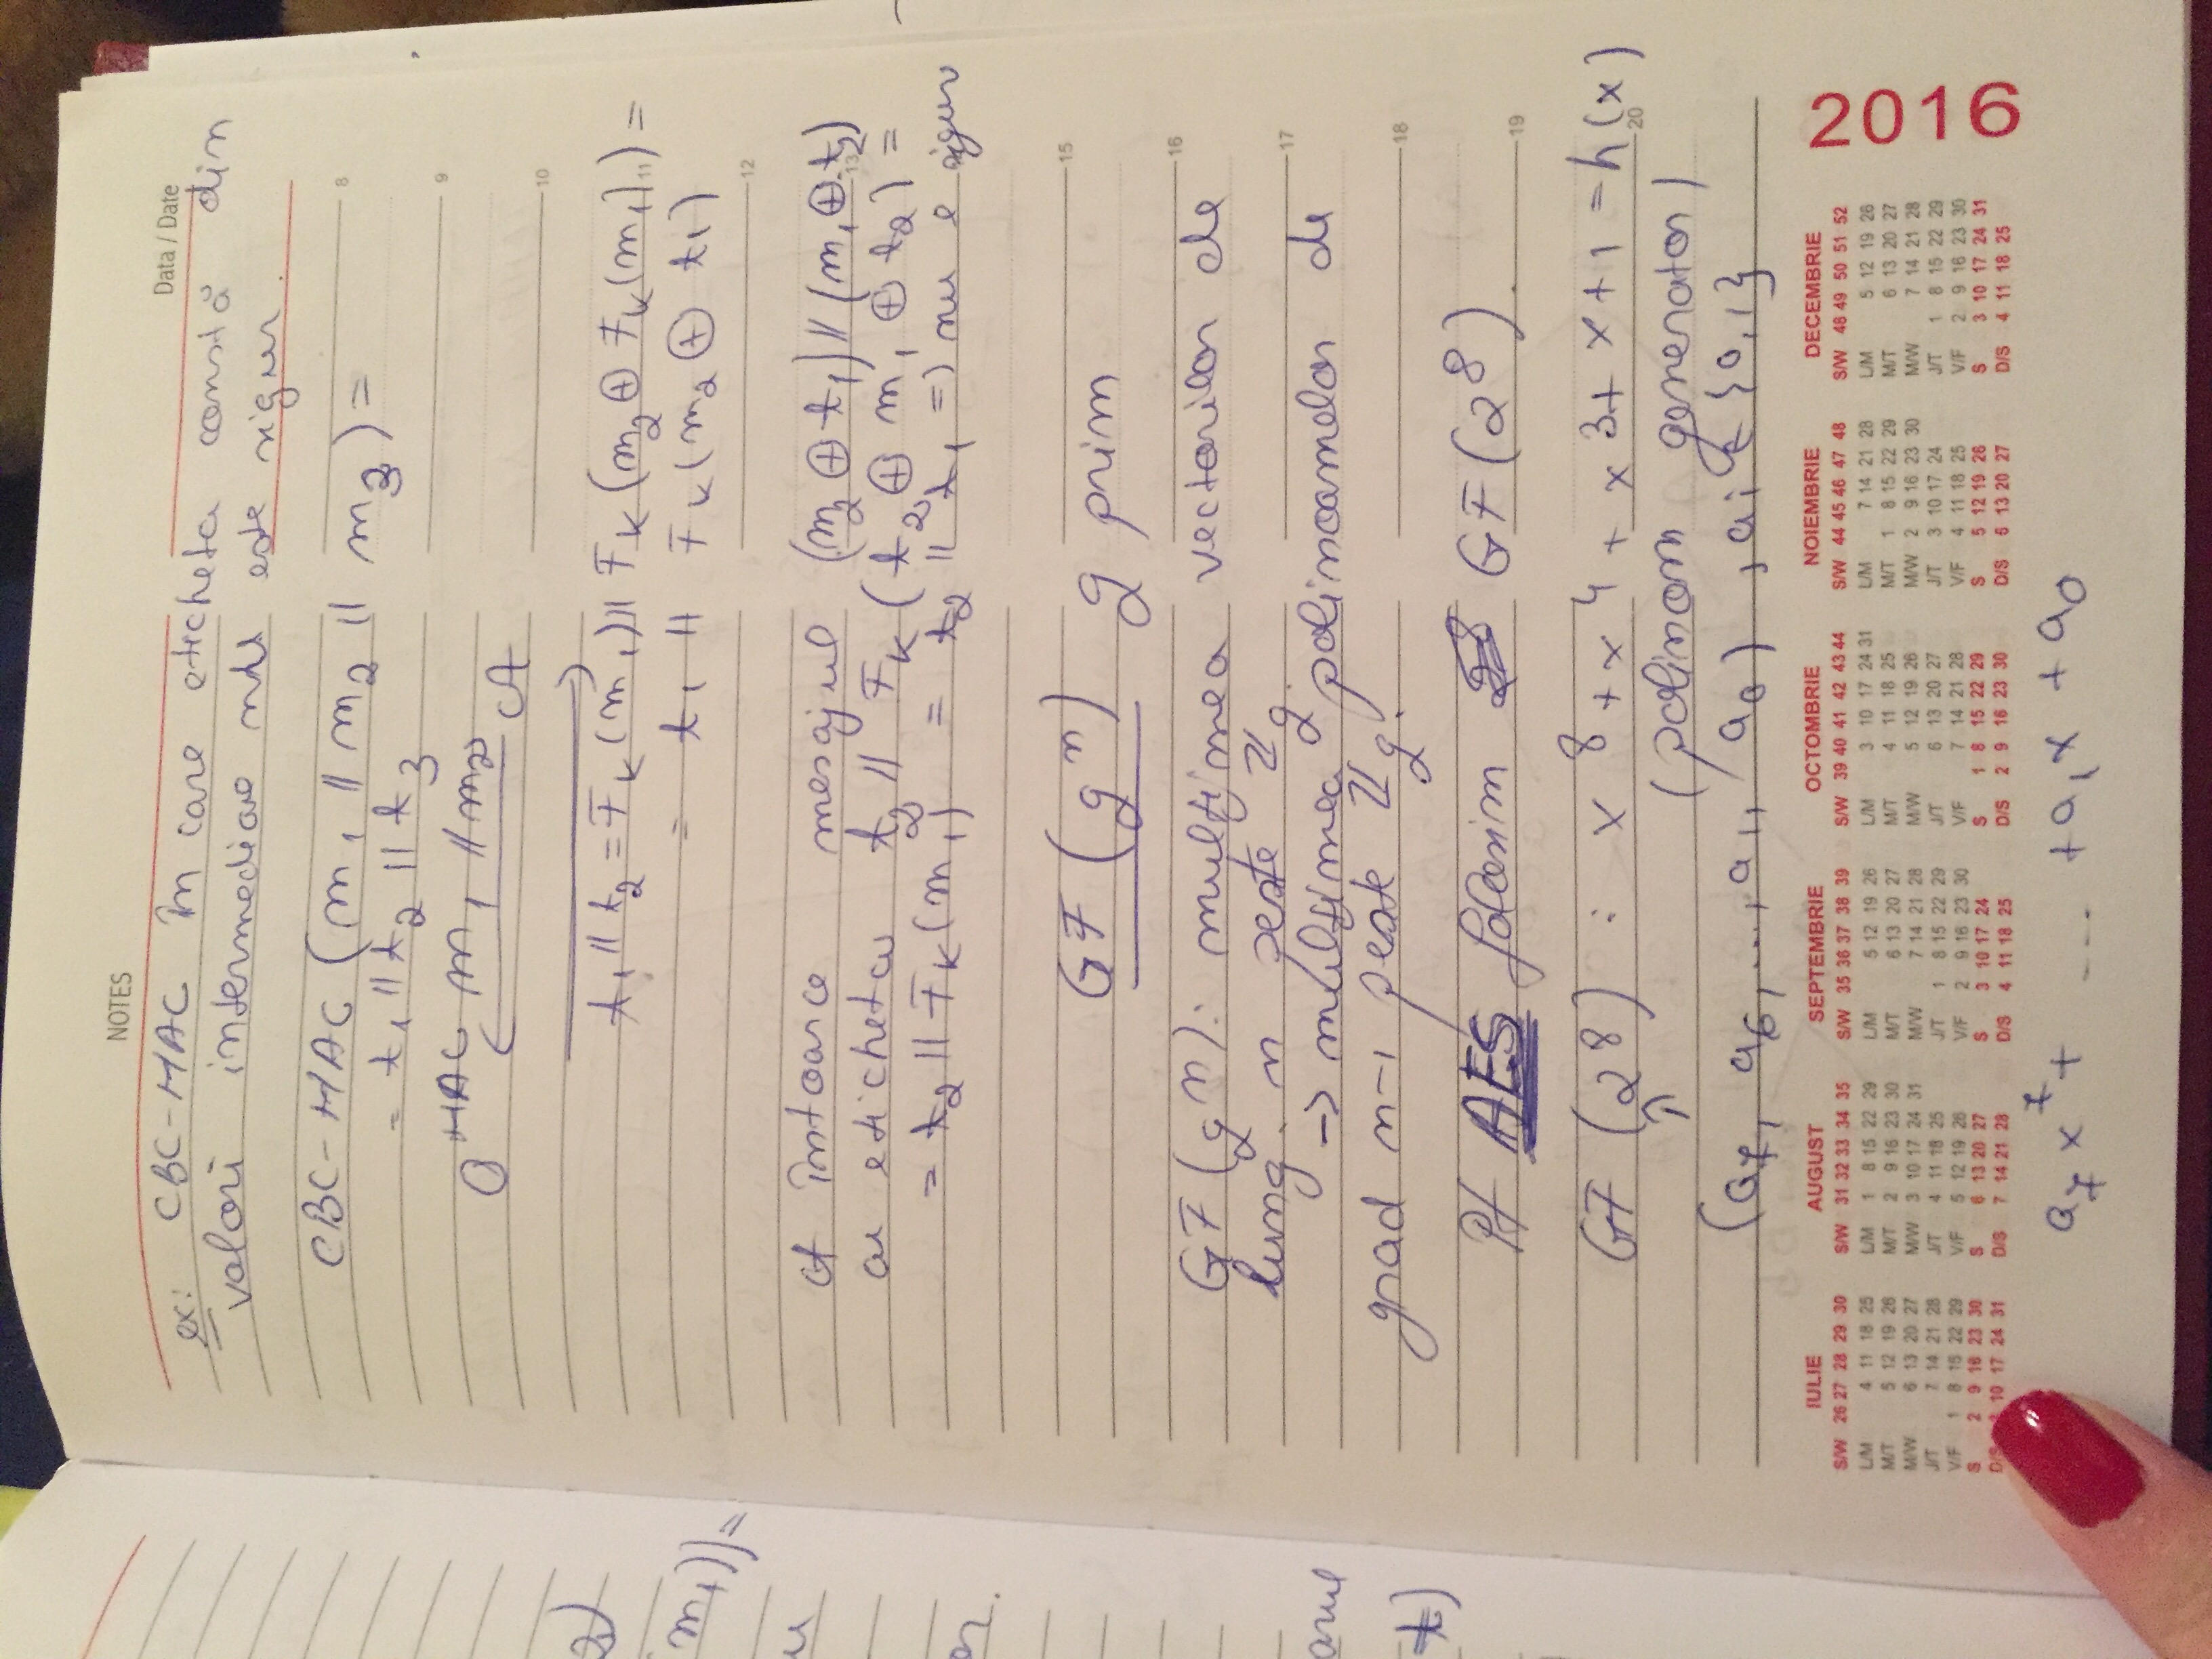 NOTES
Data / Date
ex: CBC-MAC în care eticheta constă din
valori intermediare nu este sigur.
CBC-MAC (m₁ || m₂ || m₃) =
= t₁ || t₂ || t₃
O^MAC m₁ || m₂
← A
→
t₁ || t₂ = F_K(m₁) || F_K(m₂ ⊕ F_K(m₁)) =
= t₁ || F_K(m₂ ⊕ t₁)
A întoarce mesajul (m₂ ⊕ t₁) || (m₁ ⊕ t₂)
cu eticheta t₂ || F_K(t₂ ⊕ m₁ ⊕ t₂) =
= t₂ || F_K(m₁) = t₂ || t₁ => nu e sigur
GF(gⁿ) g prim
GF(gⁿ): mulțimea vectorilor de
lung. n peste ℤg.
-> mulțimea polinoamelor de
grad n-1 peste ℤg.
Pt AES folosim GF(2⁸).
GF(2⁸) : x⁸ + x⁴ + x³ + x + 1 = h(x)
(polinom generator)
(a₇, a₆, ..., a₁, a₀), aᵢ ∈ {0,1}
8
9
10
11
12
13
15
16
17
18
19
20
IULIE
S/W 26 27 28 29 30
L/M 4 11 18 25
M/T 5 12 19 26
M/W 6 13 20 27
J/T 7 14 21 28
V/F 1 8 15 22 29
S 2 9 16 23 30
D/S 3 10 17 24 31
AUGUST
S/W 31 32 33 34 35
L/M 1 8 15 22 29
M/T 2 9 16 23 30
M/W 3 10 17 24 31
J/T 4 11 18 25
V/F 5 12 19 26
S 6 13 20 27
D/S 7 14 21 28
SEPTEMBRIE
S/W 35 36 37 38 39
L/M 5 12 19 26
M/T 6 13 20 27
M/W 7 14 21 28
J/T 1 8 15 22 29
V/F 2 9 16 23 30
S 3 10 17 24
D/S 4 11 18 25
OCTOMBRIE
S/W 39 40 41 42 43 44
L/M 3 10 17 24 31
M/T 4 11 18 25
M/W 5 12 19 26
J/T 6 13 20 27
V/F 7 14 21 28
S 1 8 15 22 29
D/S 2 9 16 23 30
NOIEMBRIE
S/W 44 45 46 47 48
L/M 7 14 21 28
M/T 1 8 15 22 29
M/W 2 9 16 23 30
J/T 3 10 17 24
V/F 4 11 18 25
S 5 12 19 26
D/S 6 13 20 27
DECEMBRIE
S/W 48 49 50 51 52
L/M 5 12 19 26
M/T 6 13 20 27
M/W 7 14 21 28
J/T 1 8 15 22 29
V/F 2 9 16 23 30
S 3 10 17 24 31
D/S 4 11 18 25
2016
a₇x⁷ + ... + a₁x + a₀